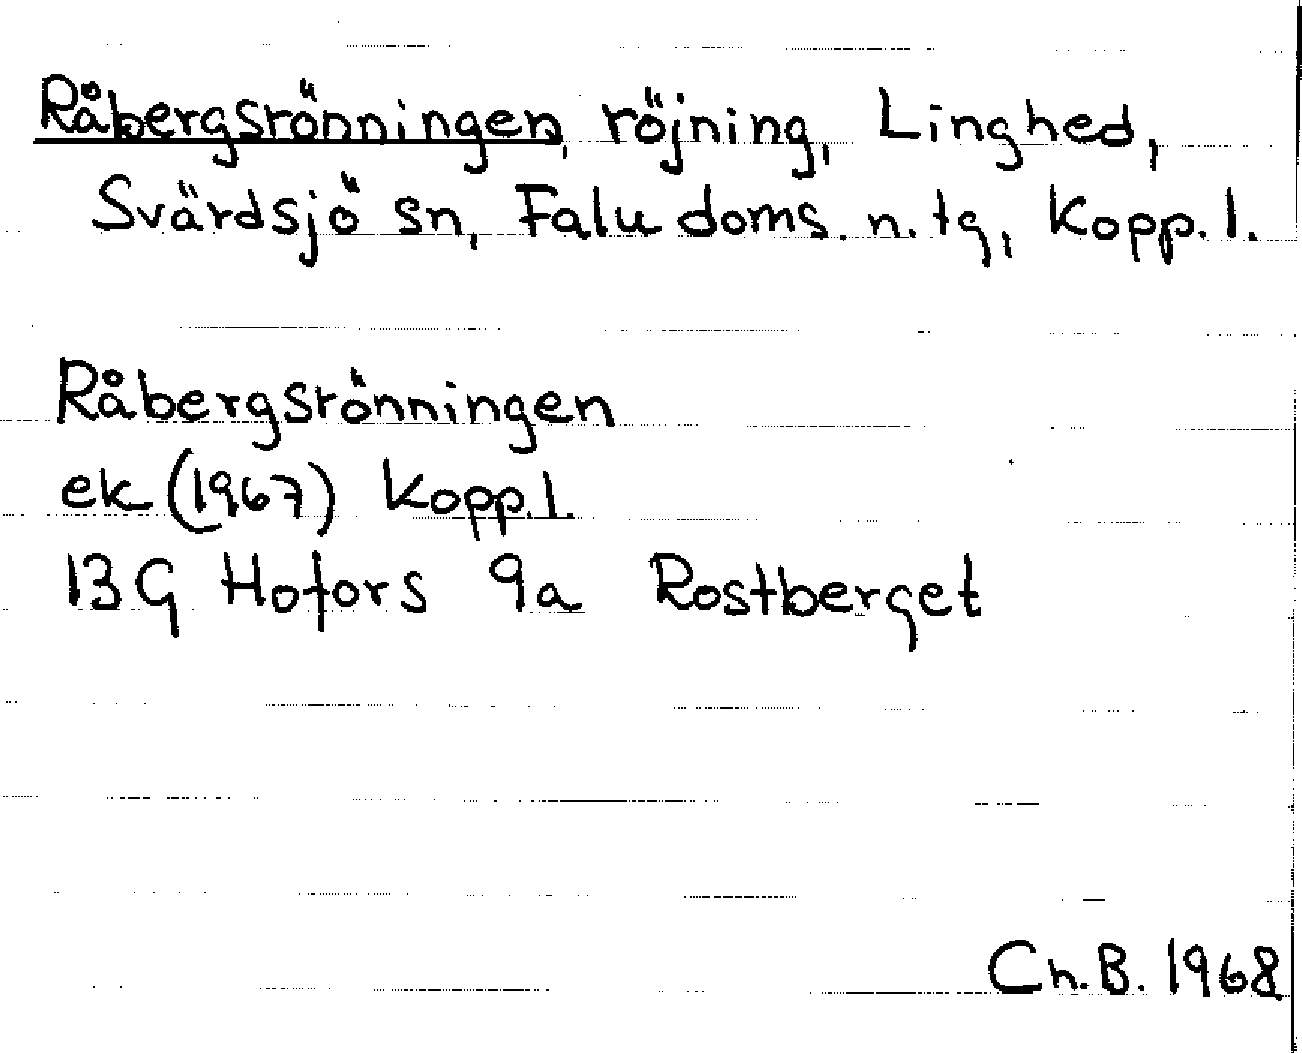 Råbergsrönningen, röjning, Linghed,
Svärdsjö sn, Falu doms. n. tg, Kopp. l.
Råbergsrönningen
ek (1967) Kopp. l.
13G Hofors 9a Rostberget
Ch. B. 1968